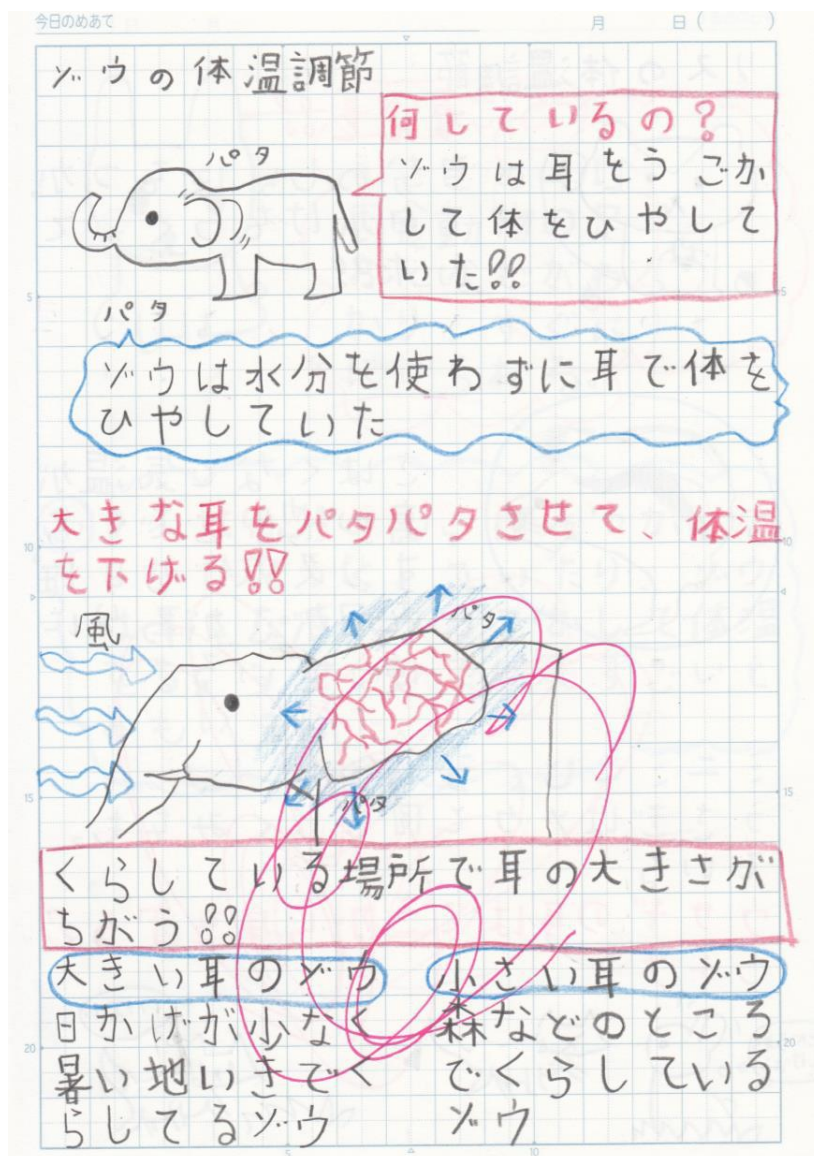 今日のめあて 月 日( )
ゾウの体温調節
何しているの?
ゾウは耳をうごか
して体をひやして
いた!!
パタ
パタ
ゾウは水分を使わずに耳で体を
ひやしていた
大きな耳をパタパタさせて、体温
を下げる!!
風
パタ
パタ
くらしている場所で耳の大きさが
ちがう!!
大きい耳のゾウ
日かげが少なく
暑い地いきでく
らしてるゾウ
小さい耳のゾウ
森などのところ
でくらしている
ゾウ
5
10
15
20
5
10
15
20
5
10